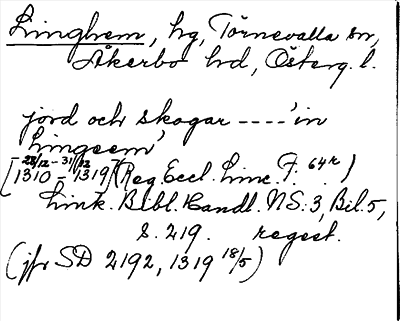 Linghem, hg, Törnevalla sn,
Åkerbo hd, Österg. l.
jord och skogar ---- 'in
Lingeem'
[28/12 - 31/12
1310 - 1319] (Reg. Eccl. Linc. F. 64r.)
Link. Bibl. Handl. NS: 3, Bil. 5,
S. 219. regest.
(jfr SD 2192, 1319 18/5)